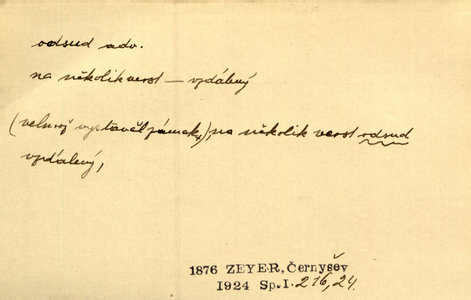 odsud adv.
na několik verst — vzdálený
(velmož vystavěl zámek), na několik verst odsud
vzdálený,
1876 ZEYER, Černyšev
1924 Sp. I. 216, 24.